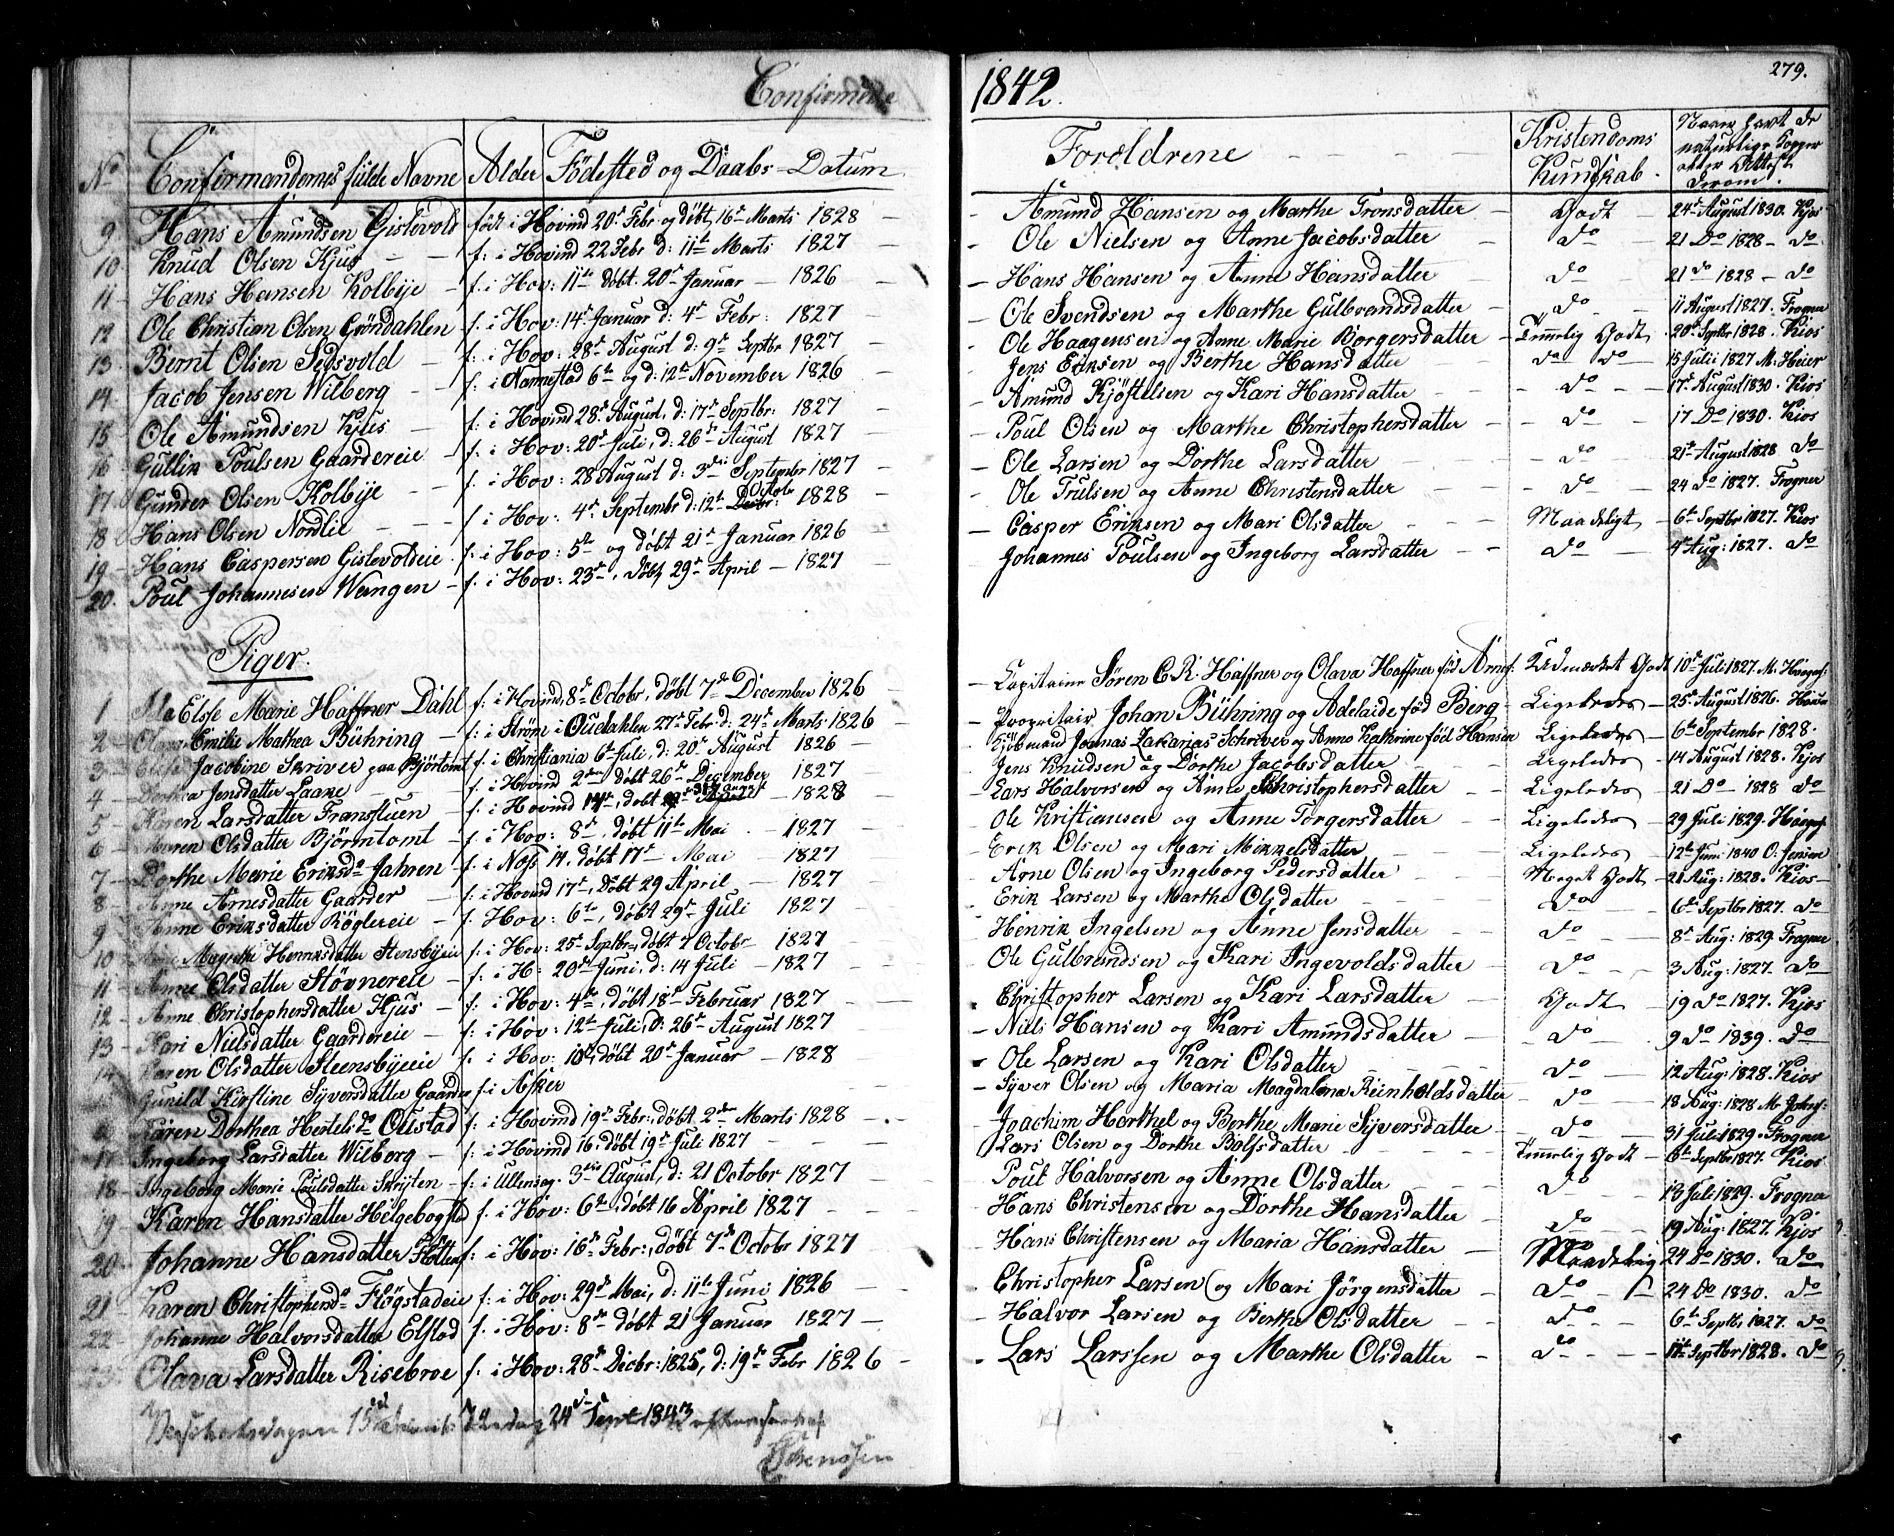 Confirmerede
No
Confirmandernes fulde Navne
Alder
Födested og Daabs-Datum
9 Hans Amundsen Gislevold födt i Hovind 20de Febr og döbt 16de Marts 1828
10 Knud Olsen Kjus f: i Hovind 22 Febr d: 11te Marts 1827
11 Hans Hansen Kolbye f: i Hov: 11te döbt 20de Januar 1826
12 Ole Christian Olsen Gröndahlen f: i Hov: 14de Januar d: 4de Febr: 1827
13 Bernt Olsen f: i Hov: 28de August d: 9de Septbr 1827
14 Jacob Jensen Wilberg f: i Nannestad 6te og d: 12te November 1826
15 Ole Amundsen Kjus f: i Hovind 28de August, d: 17de Septbr: 1827
16 Gullik Poulsen Gaardereie f: i Hov: 20de Juli, d: 26de August 1827
17 Gunder Olsen Kolbye f: i Hov: 28 August d: 3die September 1827
18 Hans Olsen Nordlie f: i Hov: 4de Septembr d: 12te Octob: 1828
19 Hans Caspersen Gislevoldeie f: i Hov: 5te og döbt 21de Januar 1826
20. Poul Johannesen Wangen f: i Hov: 23de, döbt 29de April 1827
Piger.
1 Ida Elsse Marie Haffner Dahl f: i Hovind, 8de Octobr, döbt 7de December 1826
2 Olava Emilie Mathea Bühring f: i Ström i Oudahlen 27de Febr: d: 24de Marts 1826
3 Jacobine Skriver paa Björtomt f: i Christiania 6te Juli, d: 20de August 1826
4 Dorthea Jensdatter Laane f: i Hovind 2den döbt 26de December 1827
5 Karen Larsdatter f: i Hovind döbt 1828
6 Maren Olsdatter Björntomt f: i Hov: 8de, döbt 11te Mai 1827
7 Dorthe Marie Eriksdr Jahren f: i Næss 14. döbt 17de Mai 1827
8 Anne Arnesdatter Gaarder f: i Hovind 17de, Döbt 29 April 1827
9 Anne Eriksdatter Röglereie f: i Hov: 6te, döbt 29de Juli 1827
10 Magrethe Henriksdatter Stensbyeie f: i Hov: 25de Septbr, döbt 7 Octobr 1827
11 Anne Olsdatter Stövnereie f: i H: 20de Juni, d: 14 Juli 1827
12 Anne Christophersdatter Kjus f: i Hov: 4de, döbt 18de Februar 1827
13 Kari Nielsdatter Gaardereie f: i Hov: 12te Juli, d: 26de August 1827
14 Karen Olsdatter Steensbyeie f: i Hov: döbt 20de Januar 1828
Gunild Kirstine Syversdatter Gaarder f: i Asker
Karen Dorthea Hertelsdr Oustad f: i Hovind 19de Febr:, döbt 2den Marts 1828
17 Ingeborg Larsdatter Wilberg f: i Hovind 16. döbt 19de Juli 1827
18 Ingeborg Marie Poulsdatter f: i Ullensag. 3die August, d: 21 Octobr 1827
19 Karen Hansdatter Helgebogstad f: i Hov: 6te, döbt 16 April 1827
20 Johanne Hansdatter f: i Hov: 16de Febr:, döbt 7de Octobr 1827
21 Karen Christophersdr Flögstadeie f: i Hov: 29de Mai, d: 11te Juni 1826
22 Johanne Halvorsdatter Elstad f: i Hov: 8de döbt 21 Januar 1827
23 Olava Larsdatter Risebroe f: i Hov: 28de Decbr: 1825, d: 19de Febr 1826
24de Sept 1843
1842.
279.
Forældrene
Kristendoms Kundskab.
Naar havt de naturlige Kopper eller Attest derom.
Amund Hansen og Marthe Tronsdatter Godt 24de August 1830. Kjos
Ole Nielsen og Anne Jacobsdatter do 21 Do 1828 do
Hans Hansen og Anne Hansdatter do 21 do 1828 do
Ole Svendsen og Marthe Gulbrandsdatter do 11 August 1827. Frogner
Ole Haagensen og Anne Marie Borgersdatter Temmelig Godt 20de Septbr 1828. Kios
Jens Eriksen og Berthe Hansdatter do do 15 Julii 1827 M. Heier
Amund Kjöstelsen og Kari Hansdatter do 17de August 1830. Kios
Poul Olsen og Marthe Christophersdatter do 17 Do 1830. Kios
Ole Larsen og Dorthe Larsdatter do 21de August 1828. do
Ole Trulsen og Anne Christensdatter do 24 do 1827. Frogner
Casper Eriksen og Mari Olsdatter Maadeligt 6te Septbr 1827. Kios
Johannes Poulsen og Ingeborg Larsdatter do 4de Aug: 1827. do
Capitaine Sören C. R. Haffner og Olava Haffner föd Udmærket Godt 10de Juli 1827. M.
Proprietair Johan Bühring og Adelaide föd Berg Ligeledes 25de August 1826.
Kjöbmand Joenas Zakarias Schriver og Anne Kathrine föd Hansen Ligeledes 6te September 1828.
Jens Knudsen og Dorthe Jacobsdatter Ligeledes 14 August 1828. Kjos
Lars Halvorsen og Anne Christophersdatter Ligeledes 21 Do 1828 do
Ole Kristiansen og Anne Torgersdatter Ligeledes 29 Juli 1829.
Erik Olsen og Mari Mikkelsdatter Ligeledes 12te Juni 1840 O. Jensen
Arne Olsen og Ingeborg Pedersdatter Meget Godt 21 Aug: 1828. Kios
Erik Larsen og Marthe Olsdatter do 6te Septbr 1827. do
Henrik Ingelsen og Anne Jensdatter do 8de Aug: 1829. Frogner
Ole Gulbrandsen og Kari Ingevoldsdatter do 3 Aug: 1827. do
Christopher Larsen og Kari Larsdatter Godt 19 Do 1827. Kjos
Niels Hansen og Kari Amundsdatter do 9 do 1839. do
Ole Larsen og Kari Olsdatter do 12 Aug: 1828. Kios
Syver Olsen og Maria Magdalena Reinholdsdatter do 18 Aug: 1828 M.
Joachim Herthel og Berthe Marie Syversdatter do 31 Juli 1829. Frogner
Lars Olsen og Dorthe Temmelig Godt Septbr 1827. Kios
Poul Halvorsen og Anne Olsdatter do 13 Juli 1829. Frogner
Hans Christensen og Dorthe Hansdatter do 19 Aug: 1827. Kjos
Hans Christensen og Maria Hansdatter Maadelig 24 Do 1830. do
Christopher Larsen og Mari Jörgensdatter do 24 Do 1830. do
Halvor Larsen og Berthe Olsdatter do 6te Septb. 1827. do
Lars Larssen og Marthe Olsdatter do 11te Septbr 1828. do